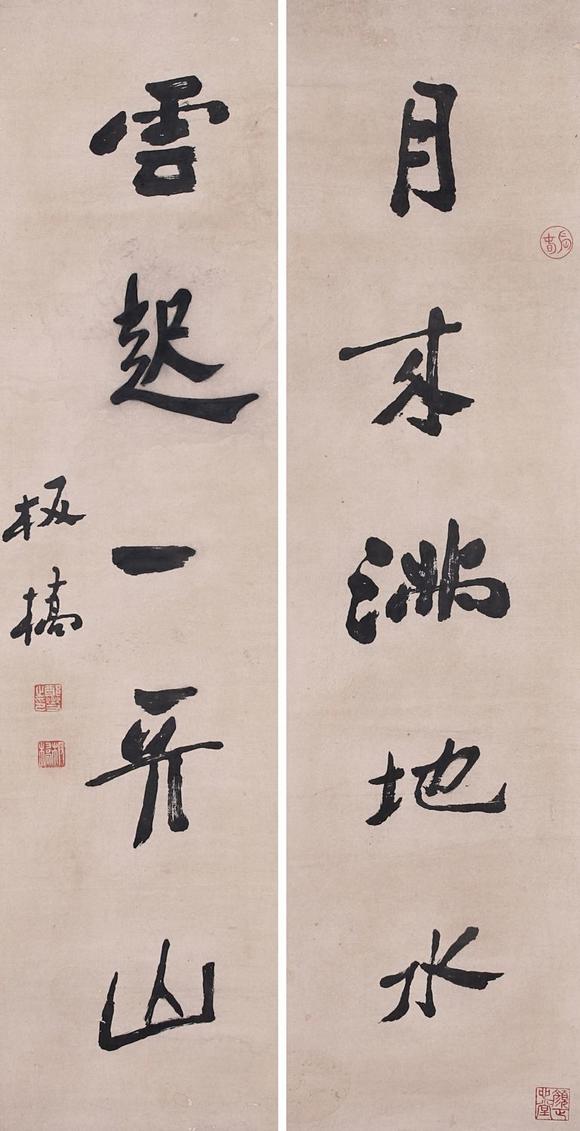 月來滿地水
雲起一天山
板橋